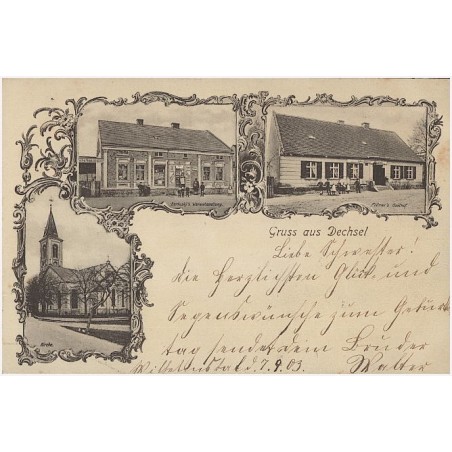 Warenhandlung.
Gasthof
Gruss aus Dechsel
Kirche.
Liebe Schwester!
die herzlichsten Glück- und
Segenswünsche zum Geburts
tag sendet dein Bruder
7.9.03. Walter